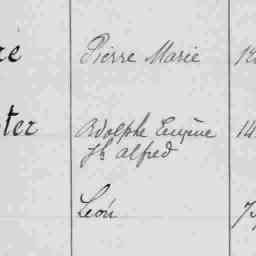 re Pierre Marie 18
ter Adolphe Eugène 14
Jh alfred
León